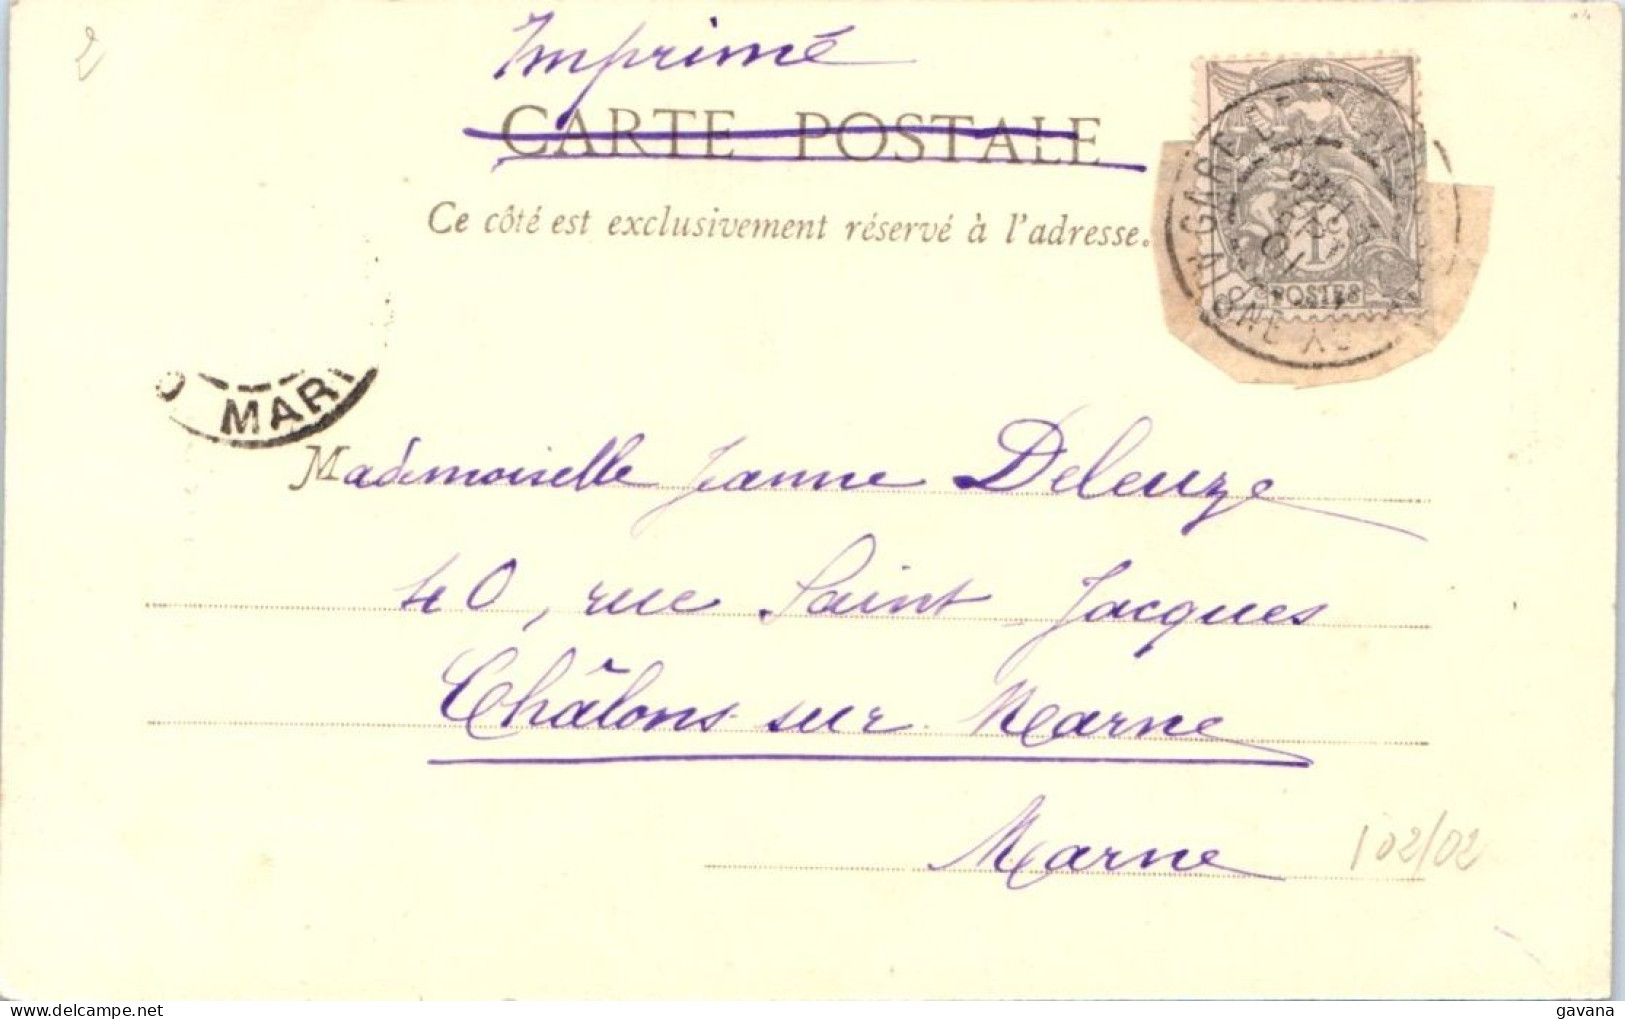 2
Imprimé
CARTE POSTALE
Ce côté est exclusivement réservé à l'adresse.
GARE
AISNE
01
1
POSTES
MAR
Mademoiselle Jeanne Deleuze
40, rue Saint Jacques
Châlons sur Marne
Marne
102/02
delcampe.net
gavana